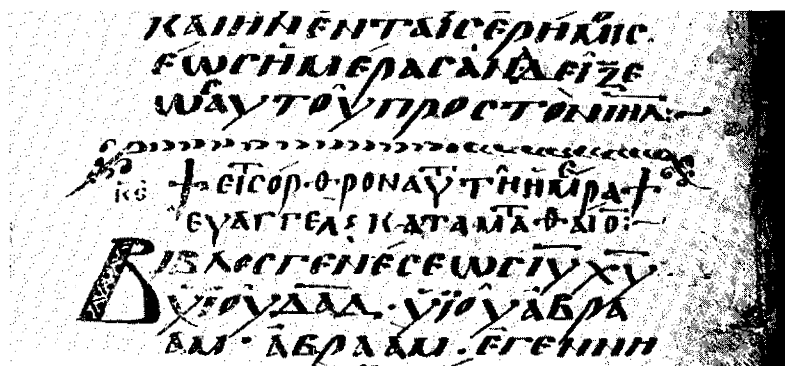 ΚΑΙ ΗΝ ΕΝ ΤΑΙΣ ΕΡΗΜΟΙΣ.
ΕΩΣ ΗΜΕΡΑΣ ΑΝΑΔΕΙΞΕ
ΩΣ ΑΥΤΟΥ ΠΡΟΣ ΤΟΝ ΙΗΛ:
ΕΙΣ ΟΡΘΡΟΝ ΑΥΤΗ ΗΜΕΡΑ
ΕΥΑΓΓΕΛ ΚΑΤΑ ΜΑΤΘΑΙΟ:
ΒΙΒΛΟΣ ΓΕΝΕΣΕΩΣ ΙΥ ΧΥ
ΥΙΟΥ ΔΑΔ · ΥΙΟΥ ΑΒΡΑ
ΑΜ · ΑΒΡΑΑΜ · ΕΓΕΝΝΗ